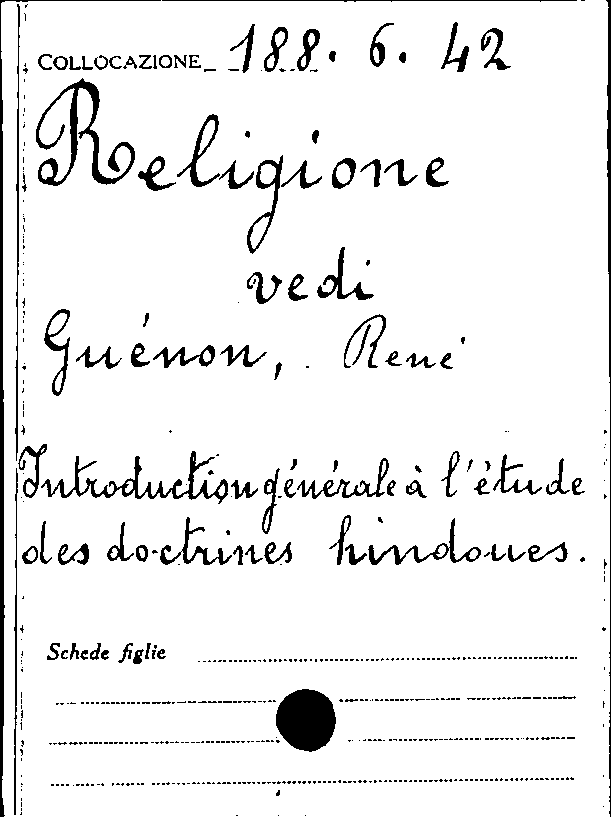 COLLOCAZIONE 188. 6. 42
Religione
vedi
Guénon, René
Introduction générale à l'étude
des doctrines hindoues.
Schede figlie